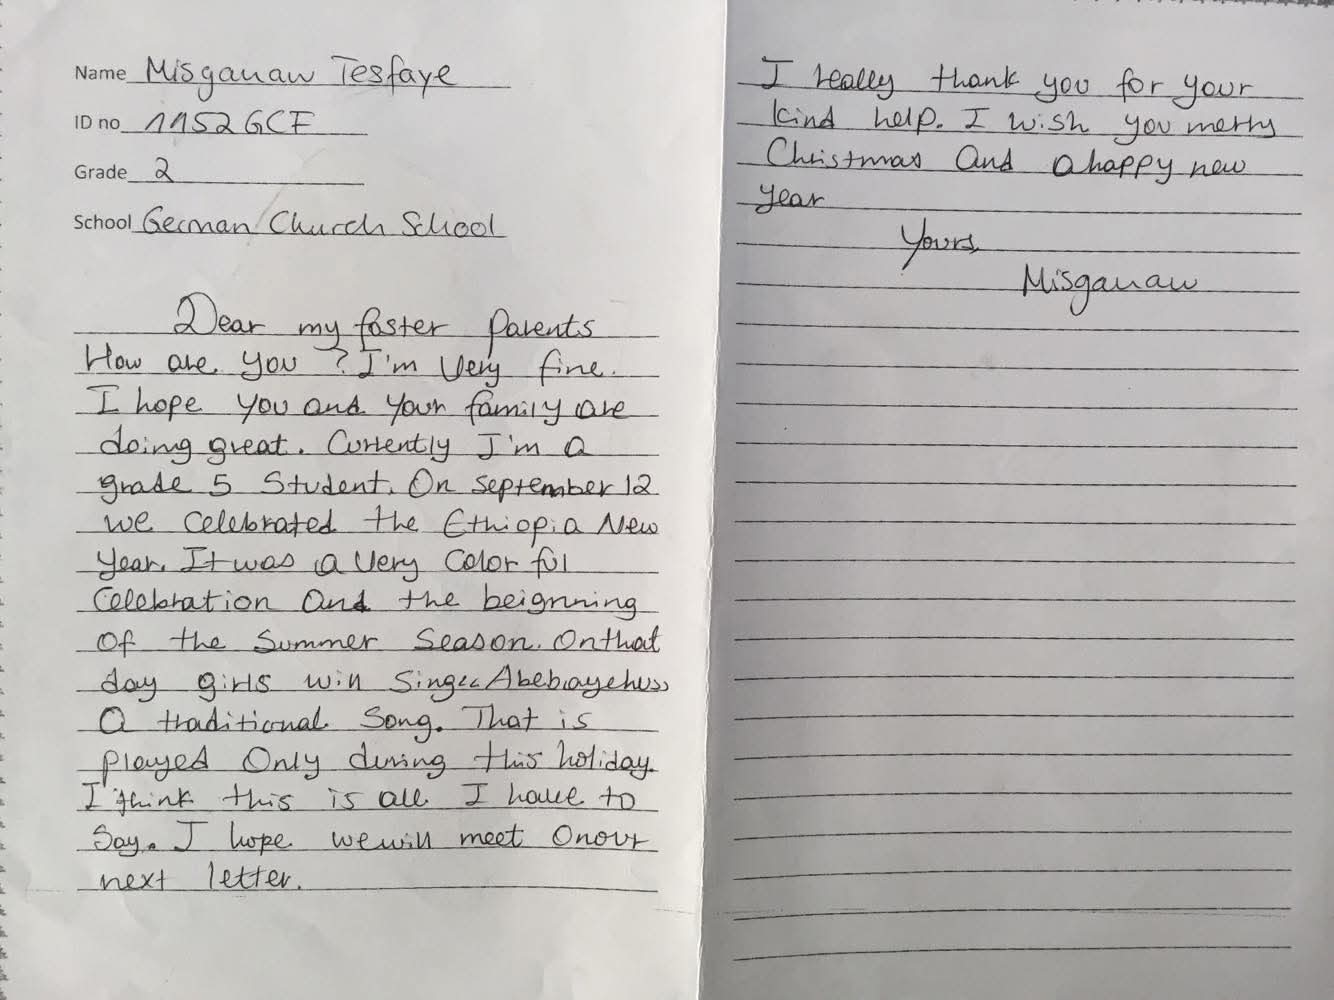 Name Misganaw Tesfaye
ID no 1152 GCF
Grade 2
School German Church School
Dear my foster parents
How are you ? I'm very fine.
I hope you and your family are
doing great. Currently I'm a
grade 5 student. On september 12
we celebrated the Ethiopia New
year. It was a very color ful
celebration and the beignning
of the summer season. On that
day girls win sing "Abebayehuss
a traditional song. That is
played only during this holiday.
I think this is all I have to
say. I hope we will meet on our
next letter.
I really thank you for your
kind help. I wish you merry
Christmas and a happy new
year
Yours,
Misganaw